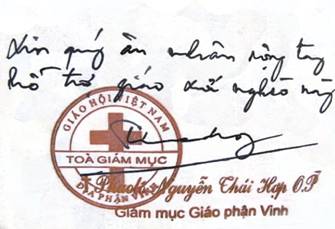 Xin quý ân nhân rộng tay
hỗ trợ giáo xứ nghèo này
GIÁO HỘI VIỆT NAM
TOÀ GIÁM MỤC
ĐỊA PHẬN VINH
Phaolô Nguyễn Thái Hợp O.P
Giám mục Giáo phận Vinh